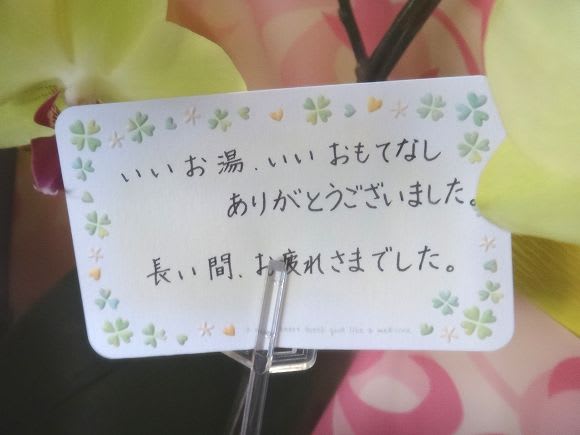 いいお湯、いいおもてなし
ありがとうございました。
長い間、お疲れさまでした。
good like a medicine